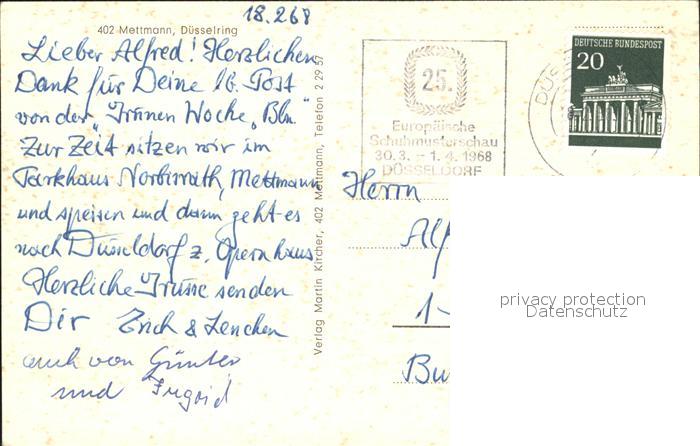 18.2.68
402 Mettmann, Düsselring
Lieber Alfred! Herzlichen
Dank für Deine lb. Post
von der "Grünen Woche, Bln."
Zur Zeit sitzen wir im
Parkhaus, Mettmann
und speisen und dann geht es
nach Düsseldorf z. Opernhaus
Herzliche Grüsse senden
Dir Erich & Lenchen
auch von Günter
und
Verlag Martin Kircher, 402 Mettmann, Telefon 2 29 57
25.
Europäische
Schuhmusterschau
30.3. - 1.4. 1968
DÜSSELDORF
DEUTSCHE BUNDESPOST
20
DÜSS
Herrn
Alf
1-
Bu
privacy protection
Datenschutz